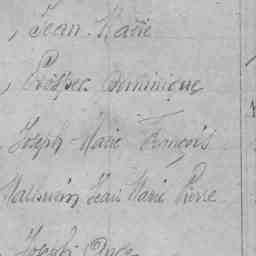 , Jean-Marie
, Prosper Dominique
Joseph-Marie François
Mathurin Jean Marie Pierre
, Joseph